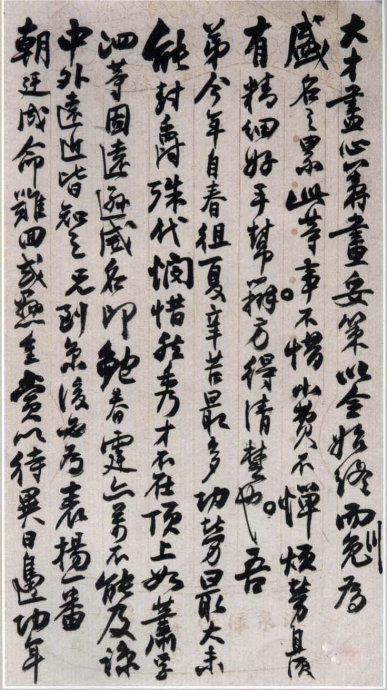 大才盡心籌畫妥策以全始終而免為
盛名之累此等事不惜小費不憚煩勞且須
有精細好手幫辦方得清楚也。吾
弟今年自春徂夏辛苦最多功勞最大未
能封爵殊代憫惜然秀才不在頂上如蕭孚
泗等固遠遜威名即鮑春霆亦萬不能及諒
中外遠近皆知之兄到京後必為表揚一番
朝廷成命難回或懸重賞以待異日邊功年